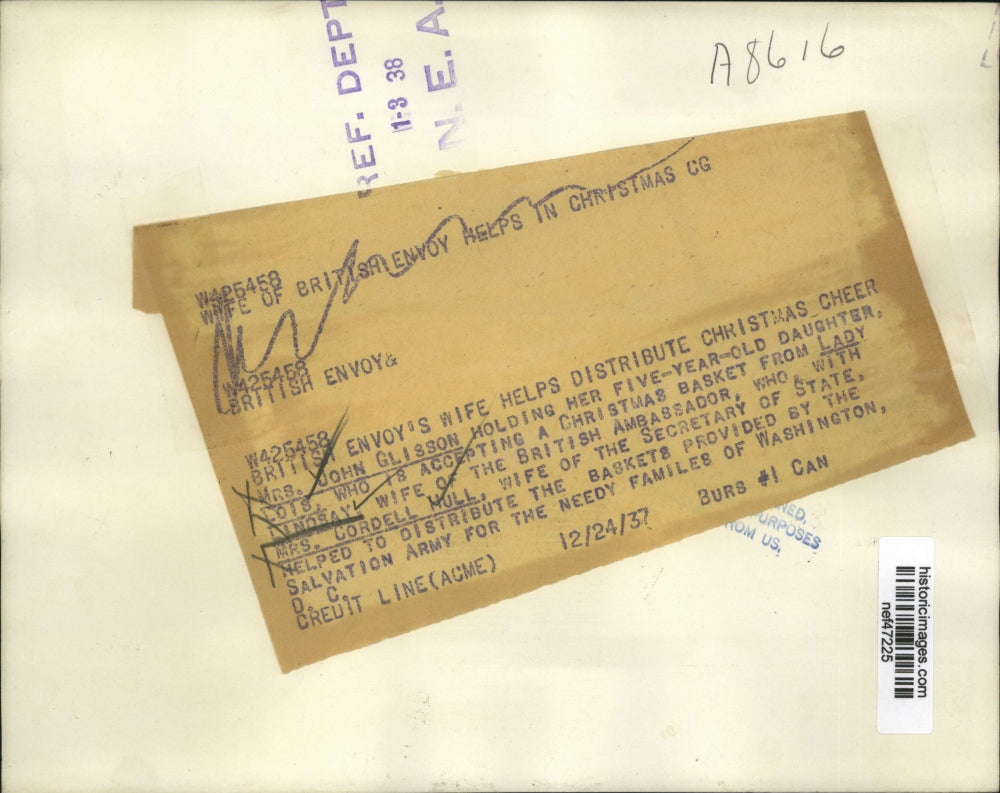 REF. DEPT
1-3 38
N. E. A.
A8616
W425458
WIFE OF BRITISH ENVOY HELPS IN CHRISTMAS CG
W425458
BRITISH ENVOY&
W425458
BRITISH ENVOY'S WIFE HELPS DISTRIBUTE CHRISTMAS CHEER
MRS. JOHN GLISSON HOLDING HER FIVE-YEAR-OLD DAUGHTER,
LOIS, WHO IS ACCEPTING A CHRISTMAS BASKET FROM LADY
LINDSAY, WIFE OF THE BRITISH AMBASSADOR, WHO, WITH
MRS. CORDELL HULL, WIFE OF THE SECRETARY OF STATE,
HELPED TO DISTRIBUTE THE BASKETS PROVIDED BY THE
SALVATION ARMY FOR THE NEEDY FAMILES OF WASHINGTON,
D. C.
CREDIT LINE(ACME) 12/24/37 BURS #1 CAN
NED,
URPOSES
ROM US,
historicimages.com
nef47225